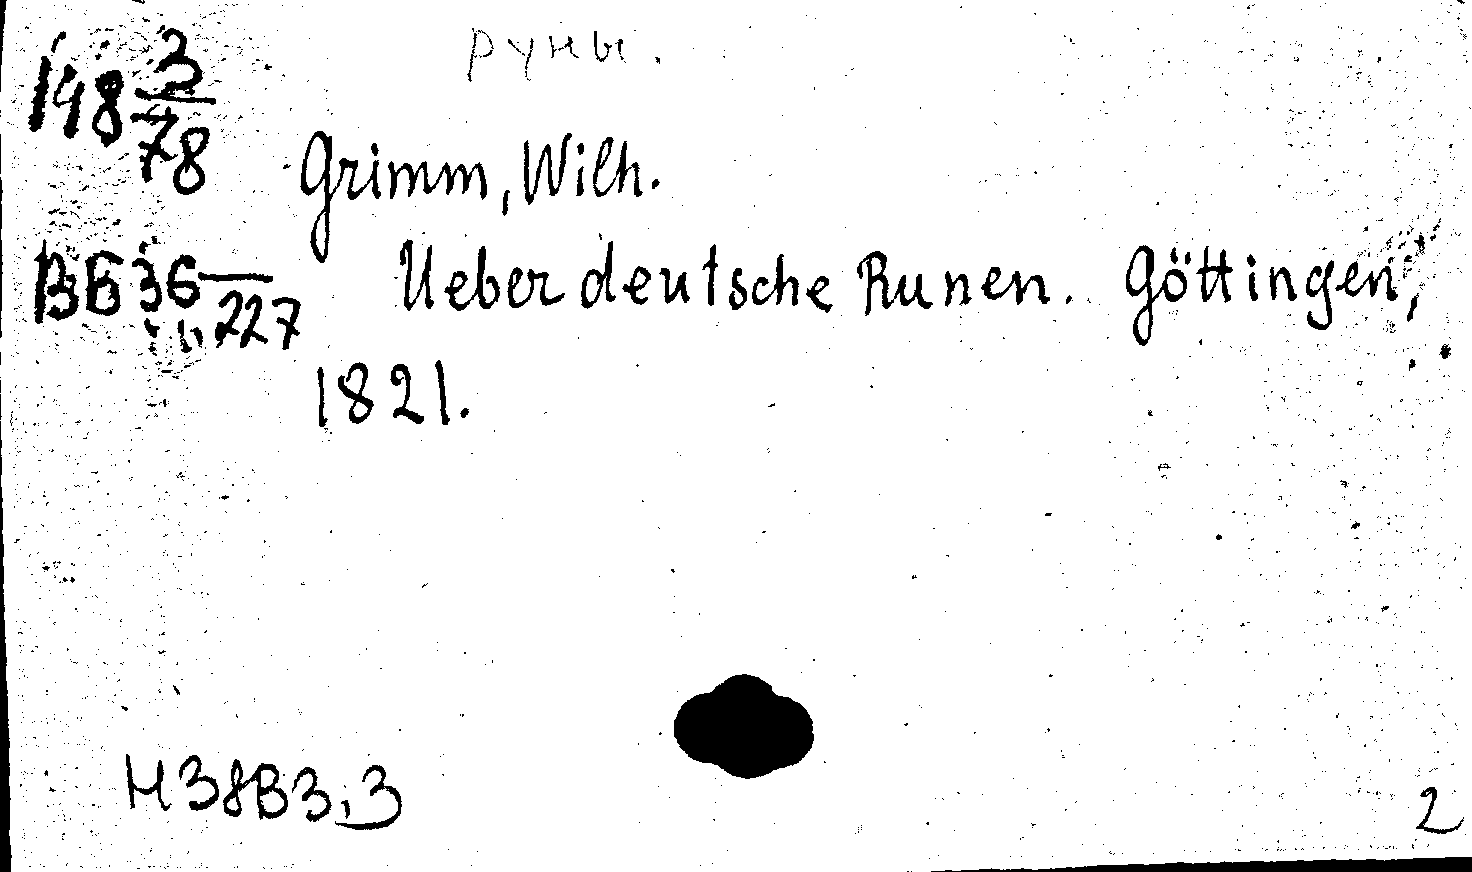 руны.
148 3/78
Grimm, Wilh.
ВБ 36 —/227
Ueber deutsche Runen. Göttingen,
1821.
Н38В3,3
2